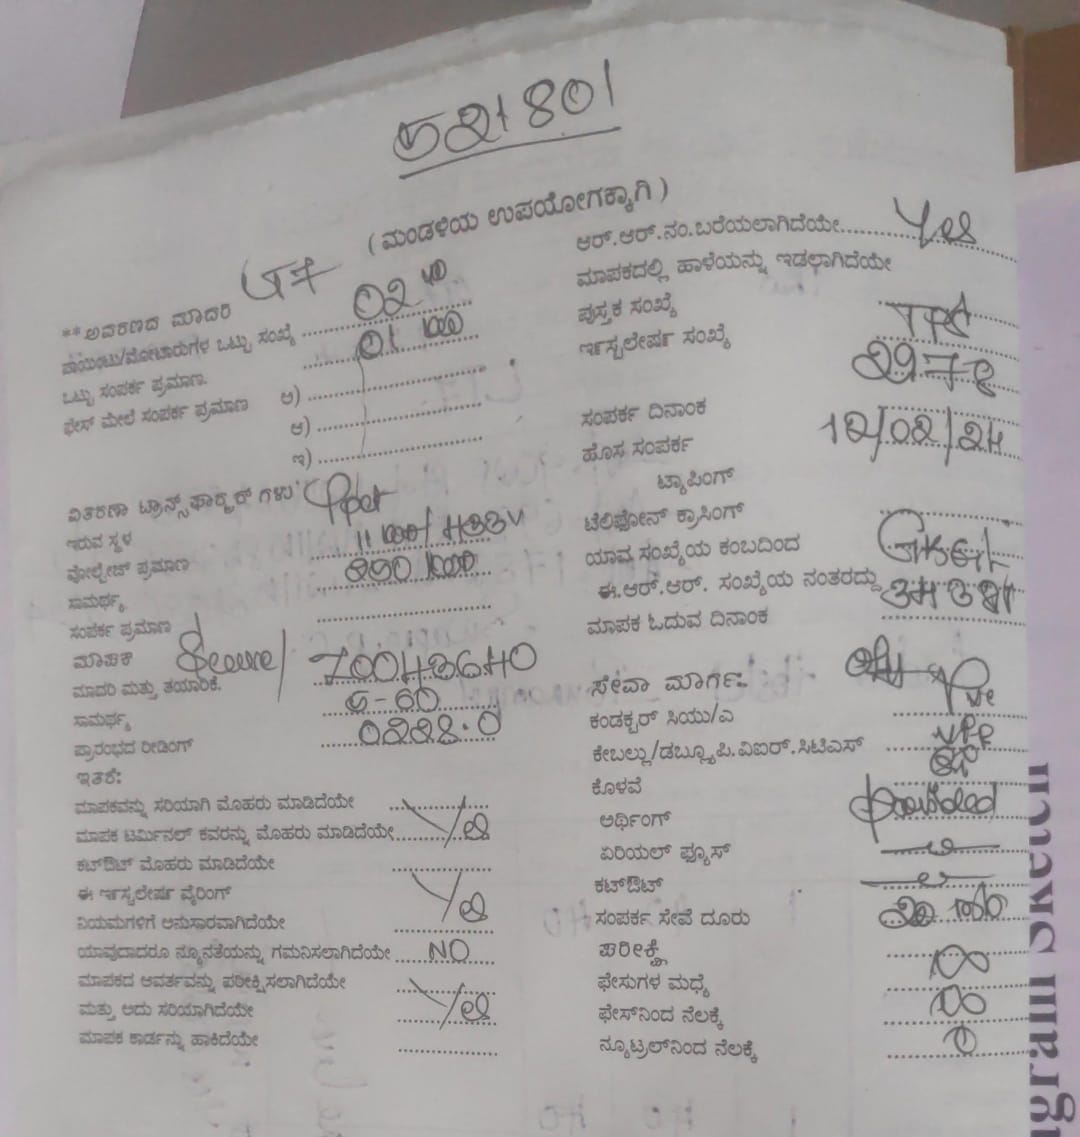 521801
( ಮಂಡಳಿಯ ಉಪಯೋಗಕ್ಕಾಗಿ )
**ಆವರಣದ ಮಾದರಿ
ಪಾಯಿಂಟು/ಮೋಟಾರುಗಳ ಒಟ್ಟು ಸಂಖ್ಯೆ 02
ಒಟ್ಟು ಸಂಪರ್ಕ ಪ್ರಮಾಣ. 01
ಫೇಸ್ ಮೇಲೆ ಸಂಪರ್ಕ ಪ್ರಮಾಣ ಅ)
ಆ)
ಇ)
ವಿತರಣಾ ಟ್ರಾನ್ಸ್‌ಫಾರ್ಮರ್ ಗಳು
ಇರುವ ಸ್ಥಳ
ವೋಲ್ಟೇಜ್ ಪ್ರಮಾಣ
ಸಾಮರ್ಥ್ಯ
ಸಂಪರ್ಕ ಪ್ರಮಾಣ
ಮಾಪಕ
ಮಾದರಿ ಮತ್ತು ತಯಾರಿಕೆ.
ಸಾಮರ್ಥ್ಯ 5-60
ಪ್ರಾರಂಭದ ರೀಡಿಂಗ್
ಇತರೆ:
ಮಾಪಕವನ್ನು ಸರಿಯಾಗಿ ಮೊಹರು ಮಾಡಿದೆಯೇ
ಮಾಪಕ ಟರ್ಮಿನಲ್ ಕವರನ್ನು ಮೊಹರು ಮಾಡಿದೆಯೇ Yes
ಕಟ್‌ಔಟ್ ಮೊಹರು ಮಾಡಿದೆಯೇ
ಈ ಇನ್‌ಸ್ಟಲೇಷನ್ ವೈರಿಂಗ್
ನಿಯಮಗಳಿಗೆ ಅನುಸಾರವಾಗಿದೆಯೇ Yes
ಯಾವುದಾದರೂ ನ್ಯೂನತೆಯನ್ನು ಗಮನಿಸಲಾಗಿದೆಯೇ NO
ಮಾಪಕದ ಆವರ್ತವನ್ನು ಪರೀಕ್ಷಿಸಲಾಗಿದೆಯೇ
ಮತ್ತು ಅದು ಸರಿಯಾಗಿದೆಯೇ Yes
ಮಾಪಕ ಕಾರ್ಡನ್ನು ಹಾಕಿದೆಯೇ
ಆರ್.ಆರ್.ನಂ.ಬರೆಯಲಾಗಿದೆಯೇ Yes
ಮಾಪಕದಲ್ಲಿ ಹಾಳೆಯನ್ನು ಇಡಲಾಗಿದೆಯೇ
ಪುಸ್ತಕ ಸಂಖ್ಯೆ
ಇನ್‌ಸ್ಟಲೇಷನ್ ಸಂಖ್ಯೆ
ಸಂಪರ್ಕ ದಿನಾಂಕ
ಹೊಸ ಸಂಪರ್ಕ 12/02/24
ಟ್ಯಾಪಿಂಗ್
ಟೆಲಿಫೋನ್ ಕ್ರಾಸಿಂಗ್
ಯಾವ ಸಂಖ್ಯೆಯ ಕಂಬದಿಂದ
ಈ.ಆರ್.ಆರ್. ಸಂಖ್ಯೆಯ ನಂತರದ್ದು
ಮಾಪಕ ಓದುವ ದಿನಾಂಕ
ಸೇವಾ ಮಾರ್ಗ:
ಕಂಡಕ್ಟರ್ ಸಿಯು/ಎ
ಕೇಬಲ್ಲು/ಡಬ್ಲ್ಯೂ.ಪಿ.ವಿಐಆರ್.ಸಿಟಿಎಸ್
ಕೊಳವೆ
ಅರ್ಥಿಂಗ್ provided
ಏರಿಯಲ್ ಫ್ಯೂಸ್
ಕಟ್‌ಔಟ್
ಸಂಪರ್ಕ ಸೇವೆ ದೂರು
ಪರೀಕ್ಷೆ
ಫೇಸುಗಳ ಮಧ್ಯೆ
ಫೇಸ್‌ನಿಂದ ನೆಲಕ್ಕೆ
ನ್ಯೂಟ್ರಲ್‌ನಿಂದ ನೆಲಕ್ಕೆ
gram Sketch